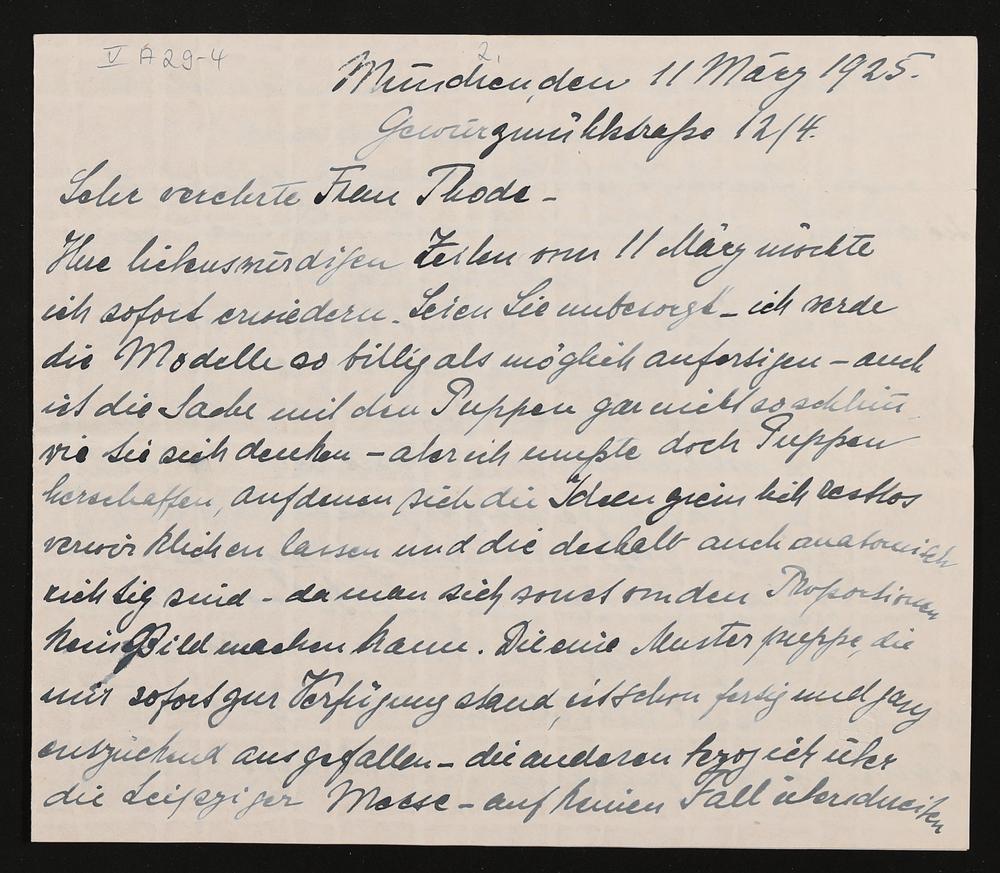 V A 29-4
2.
München, den 11 März 1925.
Gewürzmühlstraße 12/4.
Sehr verehrte Frau Thode -
Ihre liebenswürdigen Zeilen vom 11 März möchte
ich sofort erwiedern. Seien Sie unbesorgt - ich werde
die Modelle so billig als möglich anfertigen - auch
ist die Sache mit den Puppen gar nicht so schlimm
wie Sie sich denken - aber ich mußte doch Puppen
herschaffen, auf denen sich die Ideen restlos
verwirklichen lassen und die deshalb auch anatomisch
richtig sind - da man sich sonst von den Proportionen
kein Bild machen kann. Die eine Musterpuppe, die
mir sofort zur Verfügung stand, ist schon fertig und ganz
entzückend ausgefallen - die anderen bezog ich über
die Leipziger Messe - auf keinen Fall überschreiten